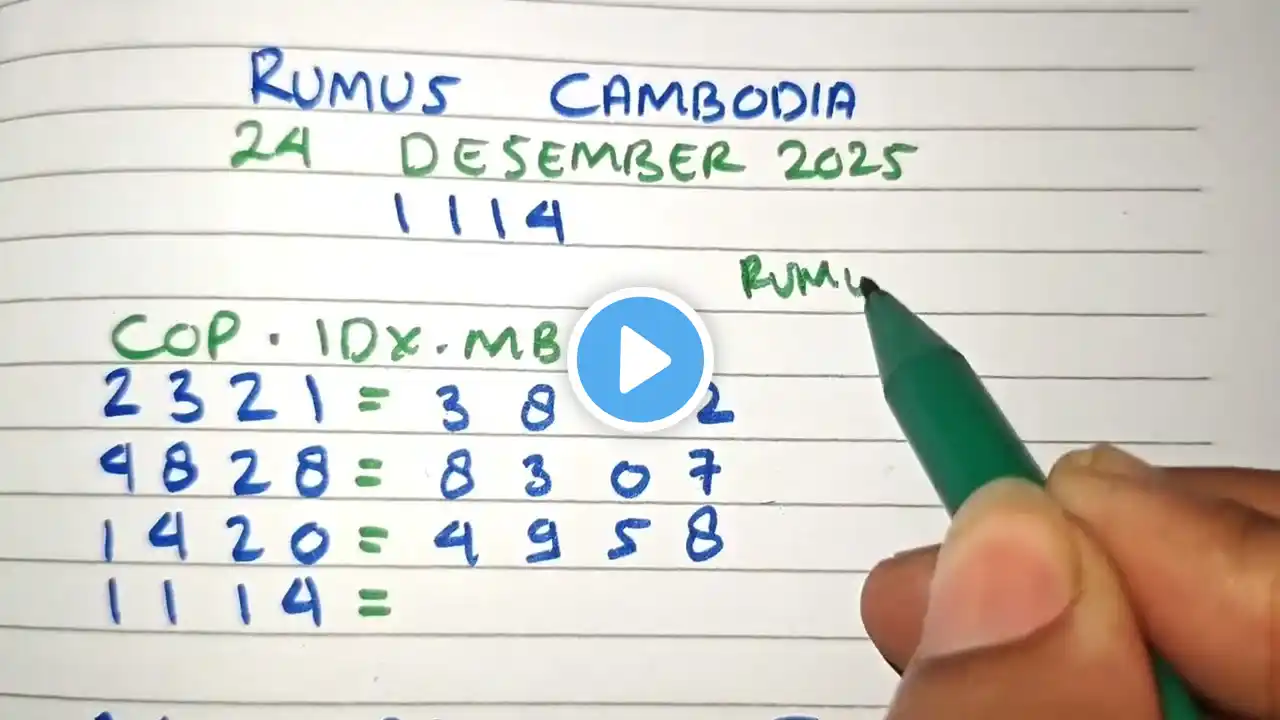 RUMUS CAMBODIA
24 DESEMBER 2025
1114
RUMU
COP . IDX . MB
2321 = 38 2
4828 = 8307
1420 = 4958
1114 =